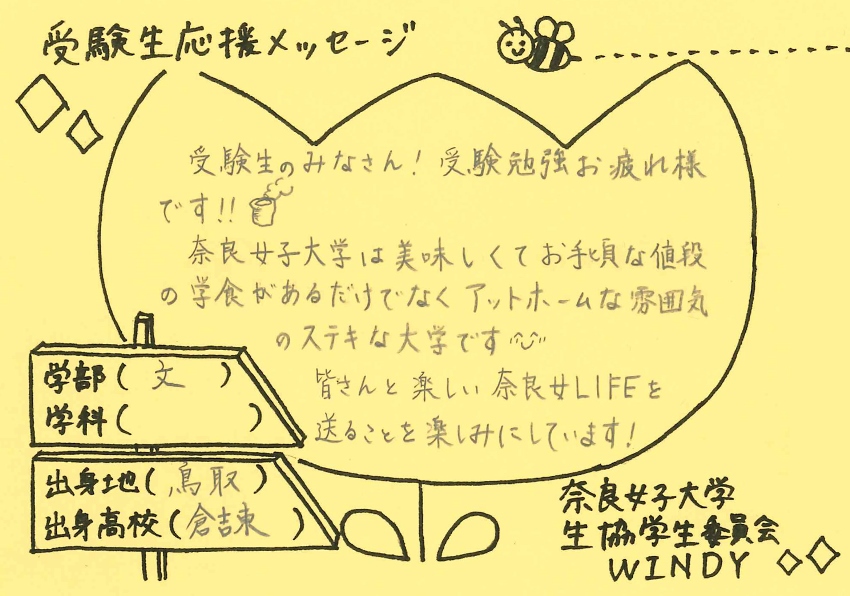 受験生応援メッセージ
受験生のみなさん！受験勉強お疲れ様
です!!
奈良女子大学は美味しくてお手頃な値段
の学食があるだけでなくアットホームな雰囲気
のステキな大学です
皆さんと楽しい奈良女LIFEを
送ることを楽しみにしています！
学部（文）
学科（　）
出身地（鳥取）
出身高校（倉吉東）
奈良女子大学
生協学生委員会
WINDY